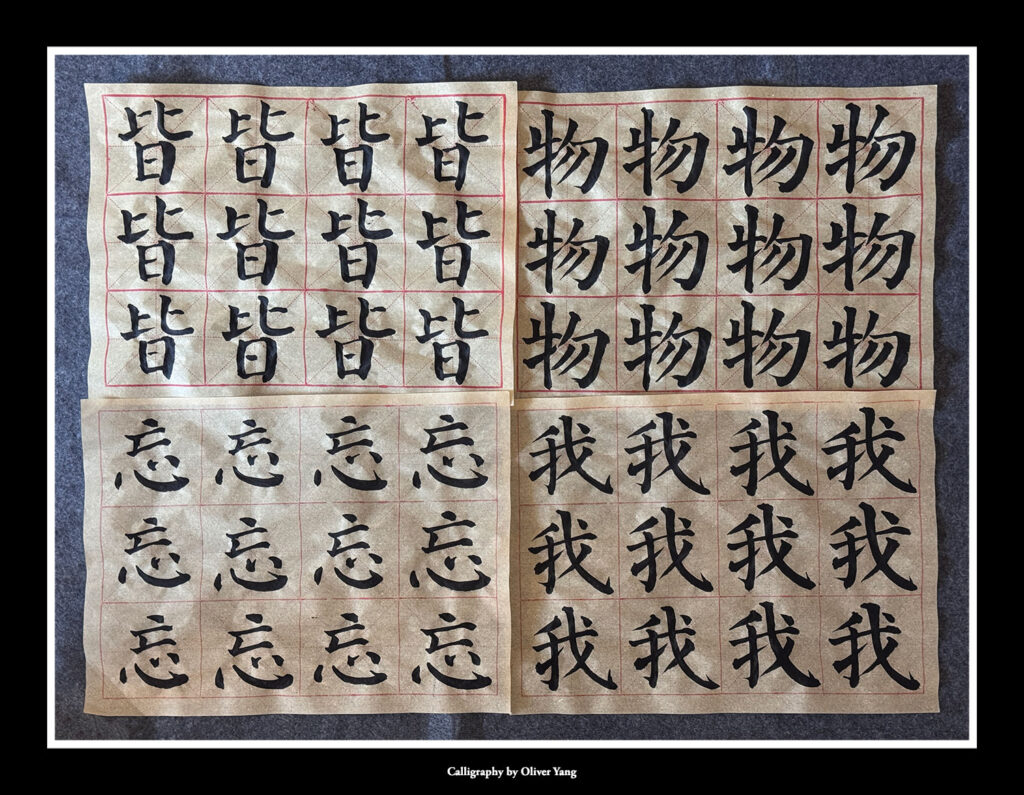 皆皆皆皆物物物物
皆皆皆皆物物物物
皆皆皆皆物物物物
忘忘忘忘我我我我
忘忘忘忘我我我我
忘忘忘忘我我我我
Calligraphy by Oliver Yang